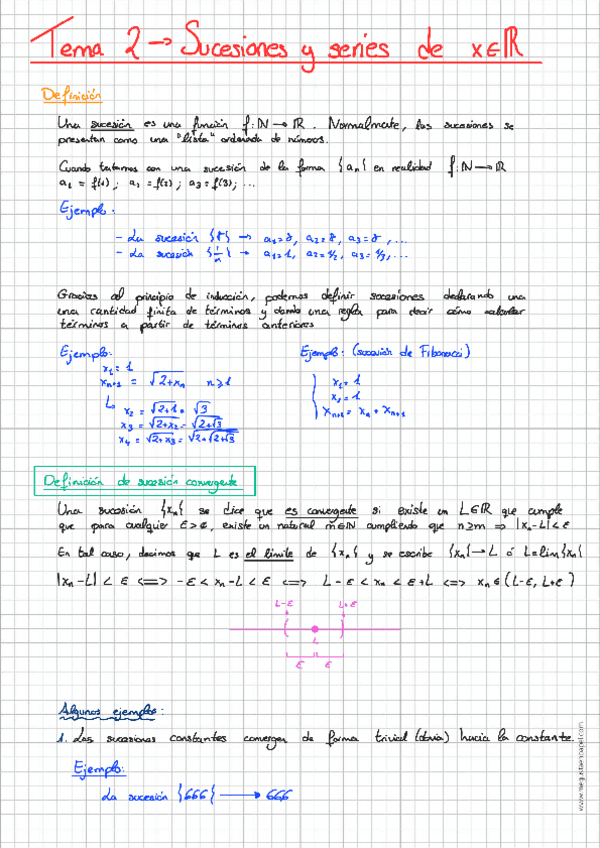 Tema 2 → Sucesiones y series de x∈ℝ
Definición
Una sucesión es una función f: ℕ → ℝ. Normalmente, las sucesiones se
presentan como una "lista" ordenada de números.
Cuando tratamos con una sucesión de la forma {aₙ} en realidad f: ℕ → ℝ
a₁ = f(1) ; a₂ = f(2) ; a₃ = f(3) ; ...
Ejemplo:
- La sucesión {8} → a₁=8, a₂=8, a₃=8, ...
- La sucesión {1/n} → a₁=1, a₂=1/2, a₃=1/3, ...
Gracias al principio de inducción, podemos definir sucesiones declarando una
una cantidad finita de términos y dando una regla para decir cómo calcular
términos a partir de términos anteriores
Ejemplo:
x₁ = 1
xₙ₊₁ = √(2+xₙ) n≥1
↳ x₂ = √(2+1) = √3
x₃ = √(2+x₂) = √(2+√3)
x₄ = √(2+x₃) = √(2+√(2+√3))
Ejemplo: (sucesión de Fibonacci)
x₁ = 1
x₂ = 1
xₙ₊₂ = xₙ + xₙ₊₁
Definición de sucesión convergente
Una sucesión {xₙ} se dice que es convergente si existe un L∈ℝ que cumple
que para cualquier ε>0, existe un natural m∈ℕ cumpliendo que n≥m ⇒ |xₙ-L|<ε
En tal caso, decimos que L es el límite de {xₙ} y se escribe {xₙ}→L ó L=lim{xₙ}
|xₙ-L| < ε ⟺ -ε < xₙ-L < ε ⟺ L-ε < xₙ < ε+L ⟺ xₙ ∈ (L-ε, L+ε)
L-ε L+ε
L
ε ε
Algunos ejemplos:
1. Las sucesiones constantes convergen de forma trivial (obvia) hacia la constante.
Ejemplo:
La sucesión {666} → 666